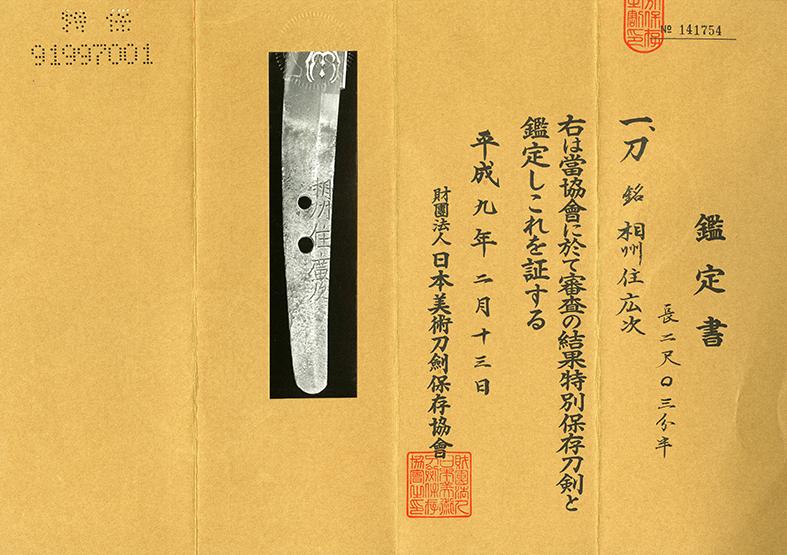 鑑定書
長二尺〇三分半
一、刀 銘 相州住広次
右は當協會に於て審査の結果特別保存刀剣と
鑑定しこれを証する
平成九年二月十三日
財團法人 日本美術刀劍保存協會
№ 141754
相州住廣次
特保
91997001